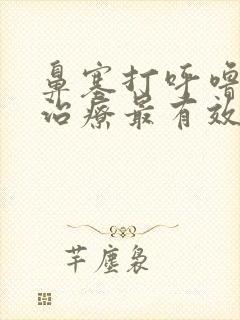 鼻塞打呼噜
治疗最有效
芊尘袅